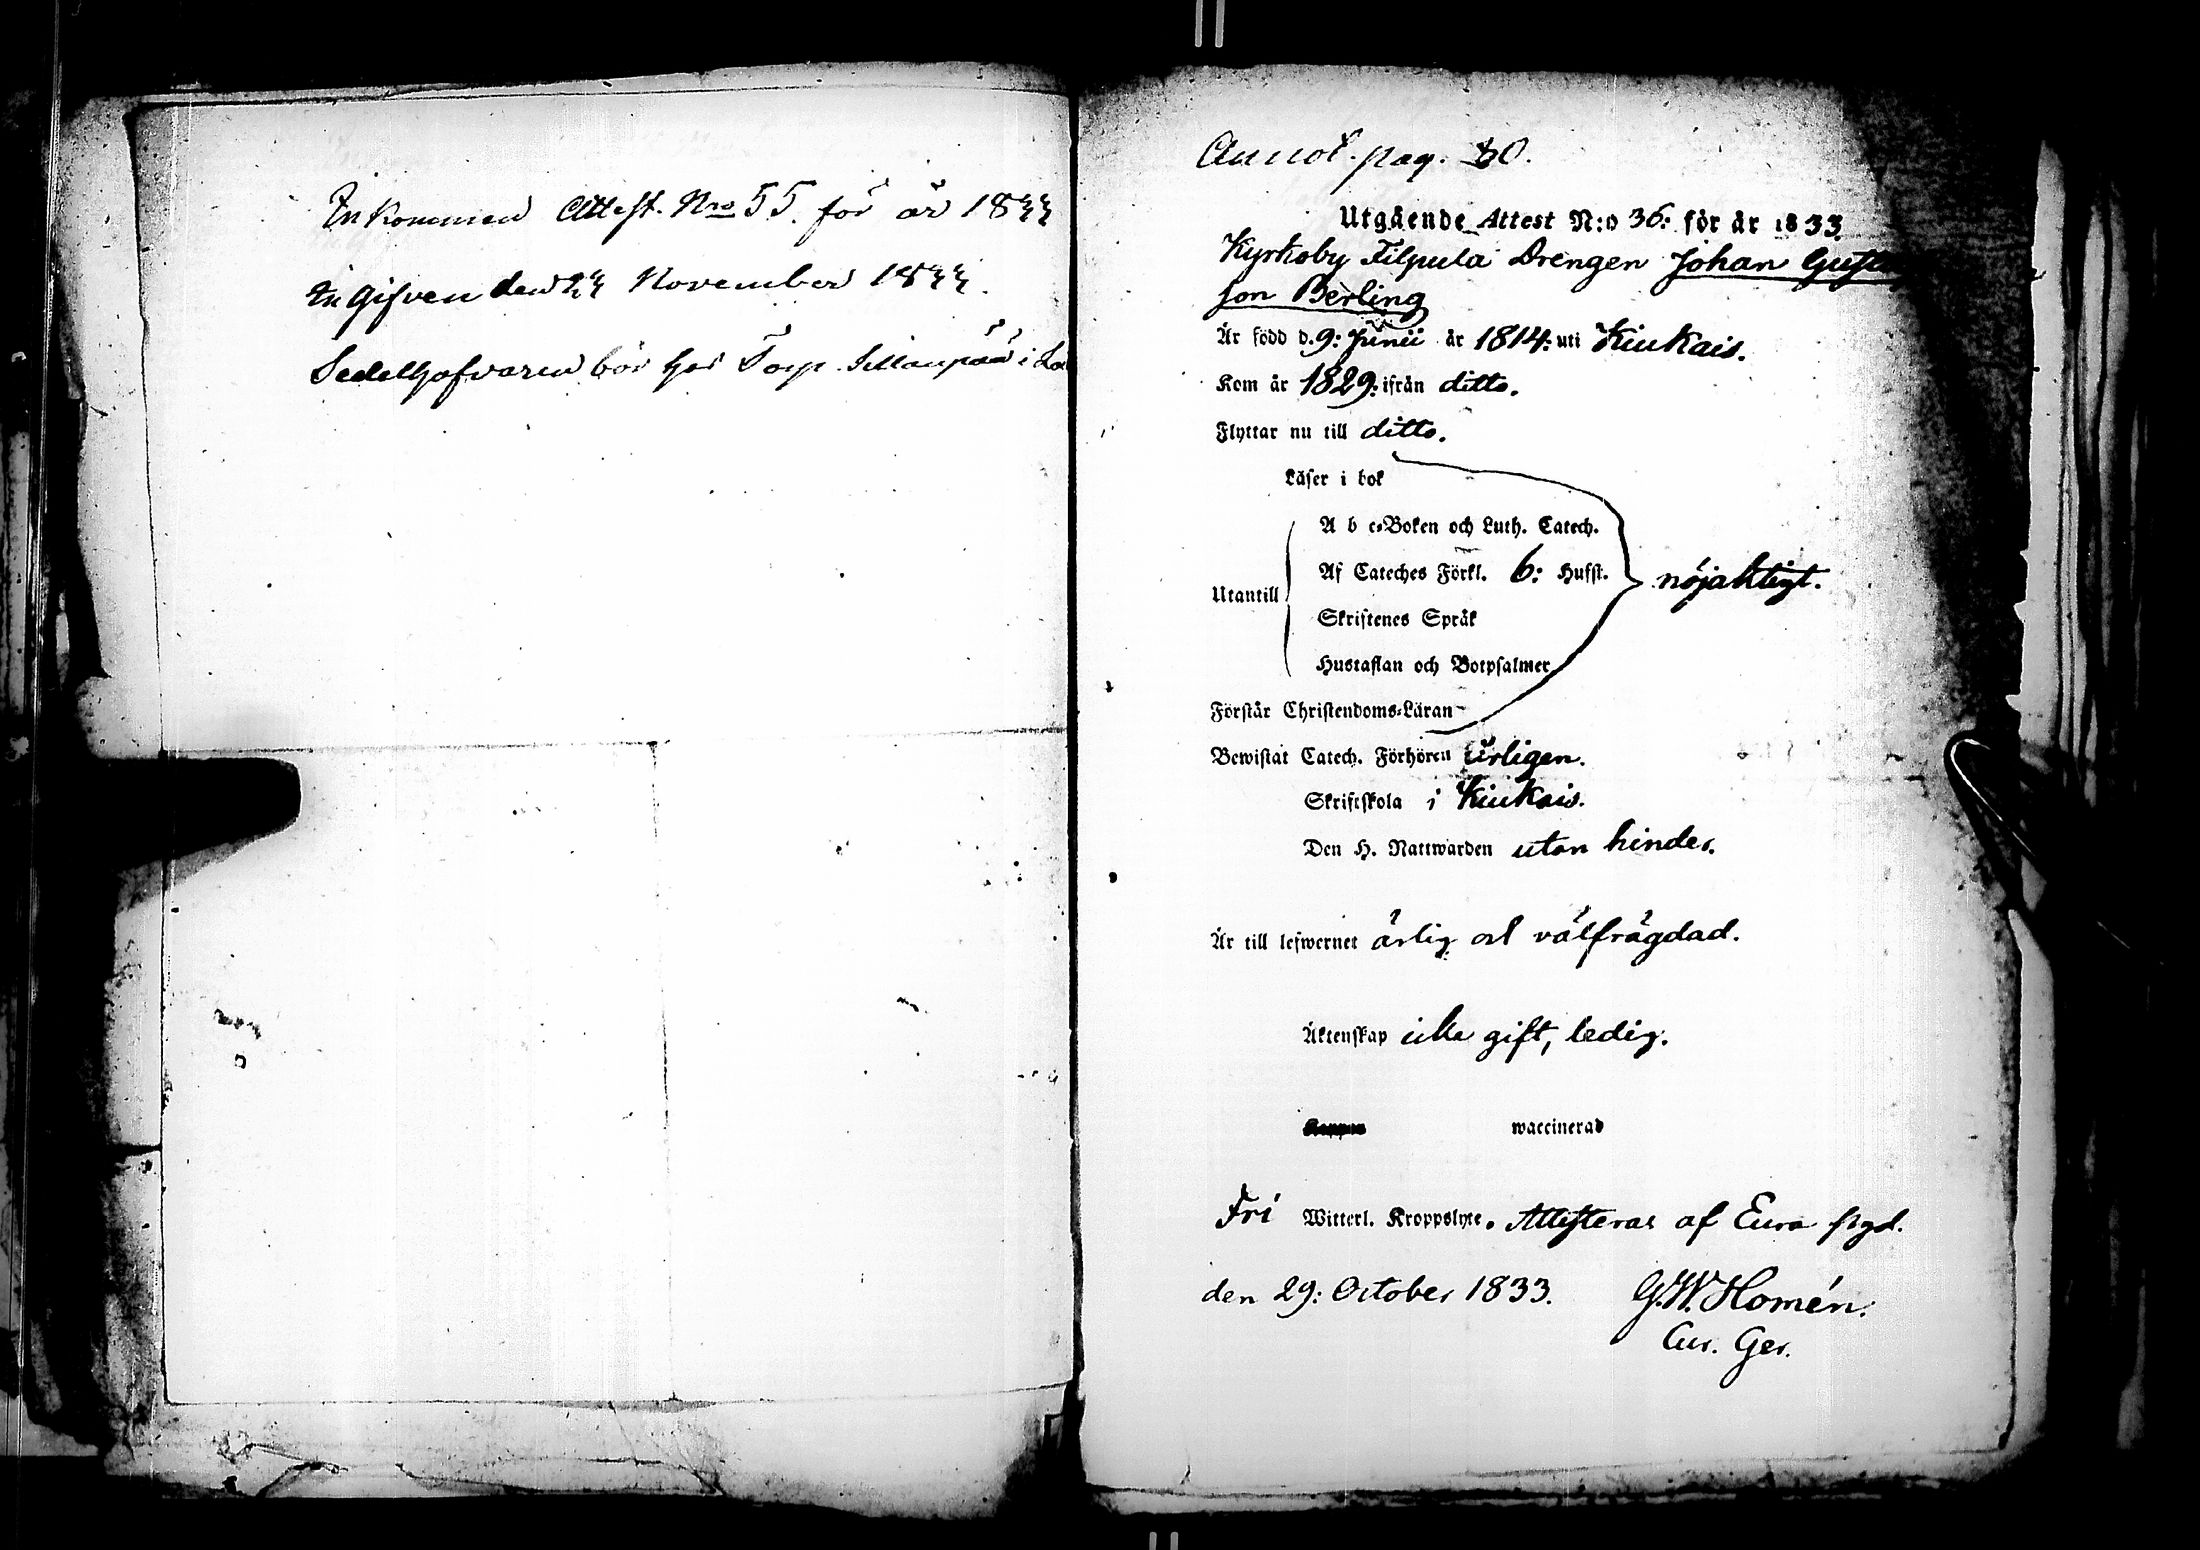 Inkommen Attest. Nro 55. för år 1833
Ingifven den 23 November 1833.
Sedelhafvaren bör hos Torp. i
Annot. pag. 60.
Utgående Attest N:o 36: för år 1833
Kyrkoby Filpula Drengen Johan Gustaf
son Berling
Är född d. 9: Junii år 1814: uti Kiukais.
Kom år 1829: ifrån ditto.
Flyttar nu till ditto.
Läser i bok
A b c-Boken och Luth. Catech.
Af Cateches Förkl. 6: Hufst.
nöjaktigt.
Utantill
Skriftenes Språk
Hustaflan och Botpsalmer
Förstår Christendoms-Läran
Bewistat Catech. Förhören årligen.
Skriftskola i Kiukais.
Den H. Nattwarden utan hinder.
Är till lefwernet ärlig och välfrägdad.
Äktenskap icke gift, ledig.
waccinerad
Fri Witterl. Kroppslyte. Attesteras af Eura pgd.
den 29: October 1833. G.W. Homén.
Cur. Ger.